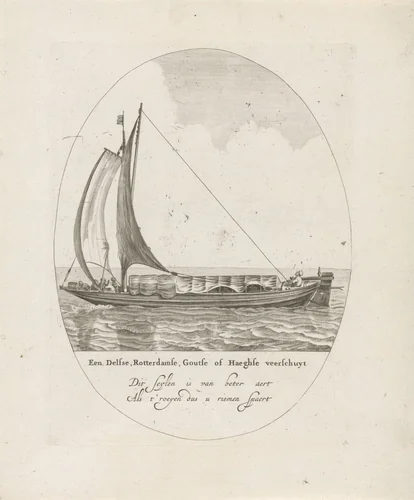 Een Delfse, Rotterdamse, Goutse of Haeghse veerschuyt
Dit seylen is van beter aert
Als t'roeyen dus u riemen spaert